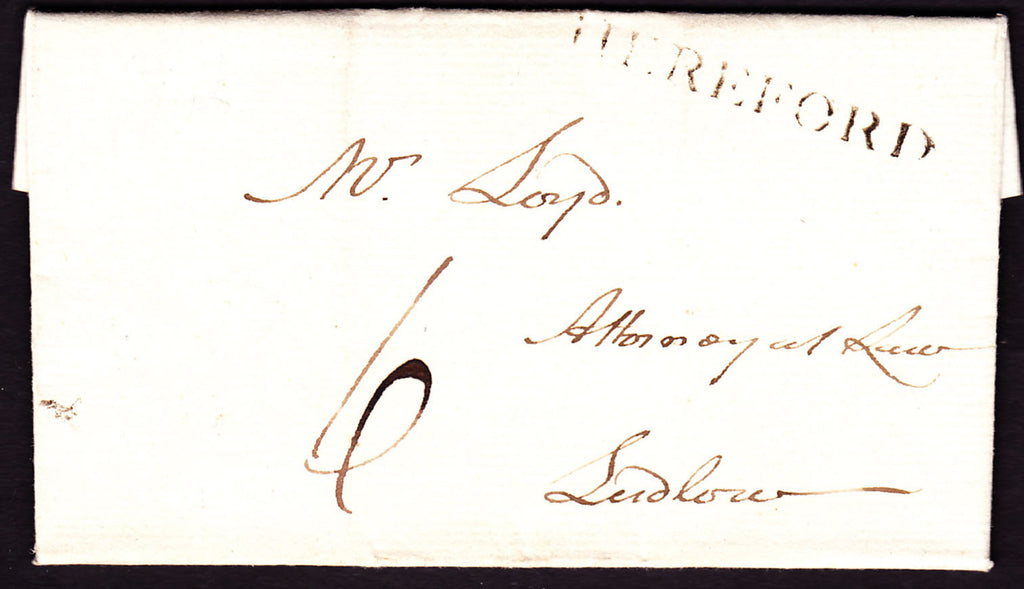 HEREFORD
Mr. Loyd.
Attorney at Law
6
Ludlow